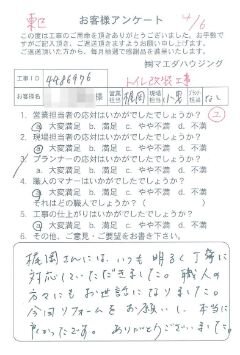 東 お客様アンケート 4/6
この度は工事のご用命を頂きありがとうございました。お手数で
すがご記入頂き、ご返送頂きますようお願い申し上げます。
ご返送頂いた方から、毎月抽選で感謝品を進呈いたします。
㈱マエダハウジング
工事ID 4486976 トイレ改装工事
お客様名 様 営業担当 梶岡 現場担当 小男 プラン担当 なし
1. 営業担当者の応対はいかがでしたでしょうか? ②
ⓐ 大変満足 b. 満足 c. やや不満 d. 不満
2. 現場担当者の応対はいかがでしたでしょうか?
ⓐ 大変満足 b. 満足 c. やや不満 d. 不満
3. プランナーの応対はいかがでしたでしょうか?
a. 大変満足 b. 満足 c. やや不満 d. 不満
4. 職人のマナーはいかがでしたでしょうか?
ⓐ 大変満足 b. 満足 c. やや不満 d. 不満
それはどの職人でしょうか? ( )
5. 工事の仕上がりはいかがでしたでしょうか?
ⓐ 大変満足 b. 満足 c. やや不満 d. 不満
6. その他、ご意見・ご要望をお書き下さい。
梶岡さんには、いつも明るく丁寧に
対応していただきました。職人の
方々にもお世話になりました。
今回リフォームをお願いし、本当に
良かったです。ありがとうございました。